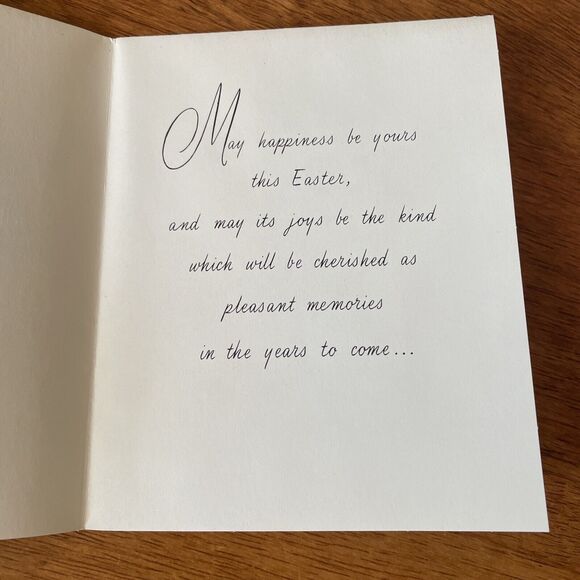 May happiness be yours
this Easter,
and may its joys be the kind
which will be cherished as
pleasant memories
in the years to come...